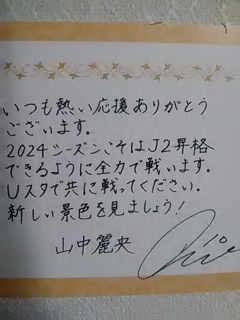 いつも熱い応援ありがとう
ございます。
2024シーズンこそはJ2昇格
できるように全力で戦います。
Uスタで共に戦ってください。
新しい景色を見ましょう!
山中麗央